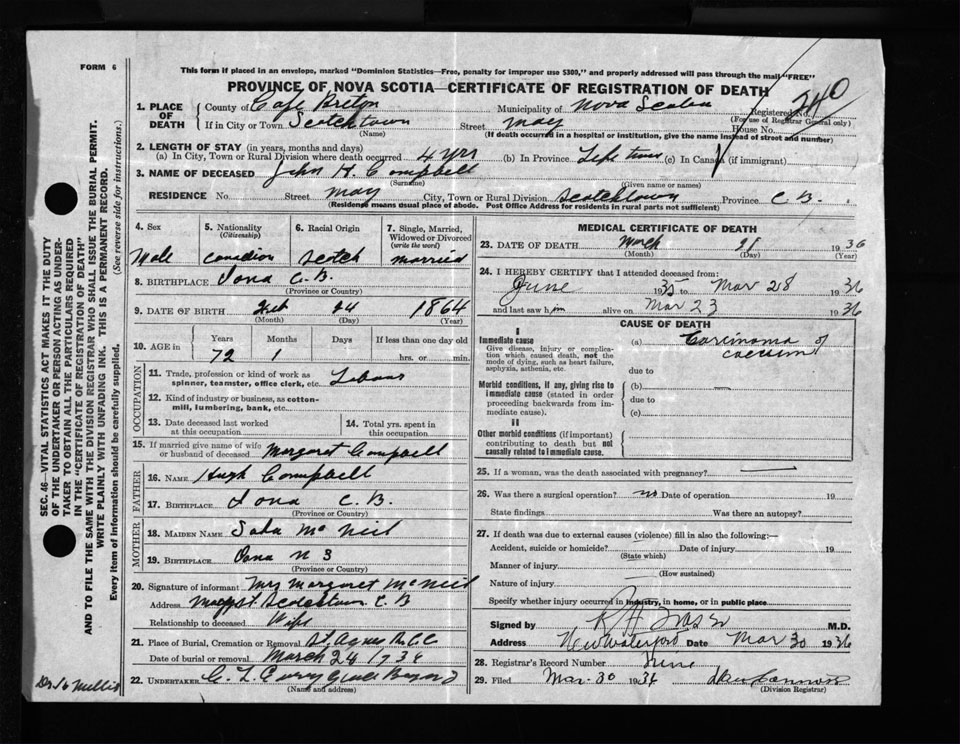 FORM 6
This form if placed in an envelope, marked "Dominion Statistics—Free, penalty for improper use $300," and properly addressed will pass through the mail "FREE"
PROVINCE OF NOVA SCOTIA—CERTIFICATE OF REGISTRATION OF DEATH
1. PLACE OF DEATH County of Cape Breton Municipality of Nova Scotia Registered No. 240
(For use of Registrar General only)
If in City or Town Scotchtown Street May House No.
(Name) (If death occurred in a hospital or institution, give the name instead of street and number)
2. LENGTH OF STAY (in years, months and days)
(a) In City, Town or Rural Division where death occurred 4 yrs (b) In Province Life time (c) In Canada (if immigrant)
3. NAME OF DECEASED John H. Campbell
(Surname) (Given name or names)
RESIDENCE No. Street May City, Town or Rural Division Scotchtown Province C B.
(Residence means usual place of abode. Post Office Address for residents in rural parts not sufficient)
4. Sex Male
5. Nationality (Citizenship) Canadian
6. Racial Origin Scotch
7. Single, Married, Widowed or Divorced (write the word) married
8. BIRTHPLACE Iona C.B.
(Province or Country)
9. DATE OF BIRTH Feb 24 1864
(Month) (Day) (Year)
10. AGE in Years 72 Months 1 Days If less than one day hrs. or min.
OCCUPATION
11. Trade, profession or kind of work as spinner, teamster, office clerk, etc. Labour
12. Kind of industry or business, as cotton-mill, lumbering, bank, etc.
13. Date deceased last worked at this occupation
14. Total yrs. spent in this occupation
15. If married give name of wife or husband of deceased Margaret Campbell
FATHER
16. Name Hugh Campbell
17. Birthplace Iona C.B.
(Province or Country)
MOTHER
18. Maiden Name Mc Neil
19. Birthplace Iona N S
(Province or Country)
20. Signature of informant Mrs Margaret McNeil
Address May St Scotchtown C.B
Relationship to deceased Wife
21. Place of Burial, Cremation or Removal St. Agnes
Date of burial or removal March 24 1936
22. UNDERTAKER C. L. Curry Glace Bay
(Name and address)
MEDICAL CERTIFICATE OF DEATH
23. DATE OF DEATH March 1936
(Month) (Day) (Year)
24. I HEREBY CERTIFY that I attended deceased from:
June 1935 to Mar 28 1936
and last saw him alive on Mar 23 1936
CAUSE OF DEATH
I
Immediate cause
Give disease, injury or complication which caused death, not the mode of dying, such as heart failure, asphyxia, asthenia, etc.
(a) Carcinoma of caecum
due to
Morbid conditions, if any, giving rise to immediate cause (stated in order proceeding backwards from immediate cause).
(b)
due to
(c)
II
Other morbid conditions (if important) contributing to death but not causally related to immediate cause.
25. If a woman, was the death associated with pregnancy?
26. Was there a surgical operation? no Date of operation 19
State findings Was there an autopsy?
27. If death was due to external causes (violence) fill in also the following:—
Accident, suicide or homicide? Date of injury 19
(State which)
Manner of injury
(How sustained)
Nature of injury
Specify whether injury occurred in industry, in home, or in public place
Signed by M.D.
Address New Waterford Date Mar 30 1936
28. Registrar's Record Number
29. Filed Mar. 30 1936
(Division Registrar)
SEC. 46—VITAL STATISTICS ACT MAKES IT THE DUTY
OF THE UNDERTAKER OR PERSON ACTING AS UNDER-
TAKER TO OBTAIN ALL THE PARTICULARS REQUIRED
IN THE "CERTIFICATE OF REGISTRATION OF DEATH"
AND TO FILE THE SAME WITH THE DIVISION REGISTRAR WHO SHALL ISSUE THE BURIAL PERMIT.
WRITE PLAINLY WITH UNFADING INK. THIS IS A PERMANENT RECORD.
Every item of information should be carefully supplied. (See reverse side for instructions.)